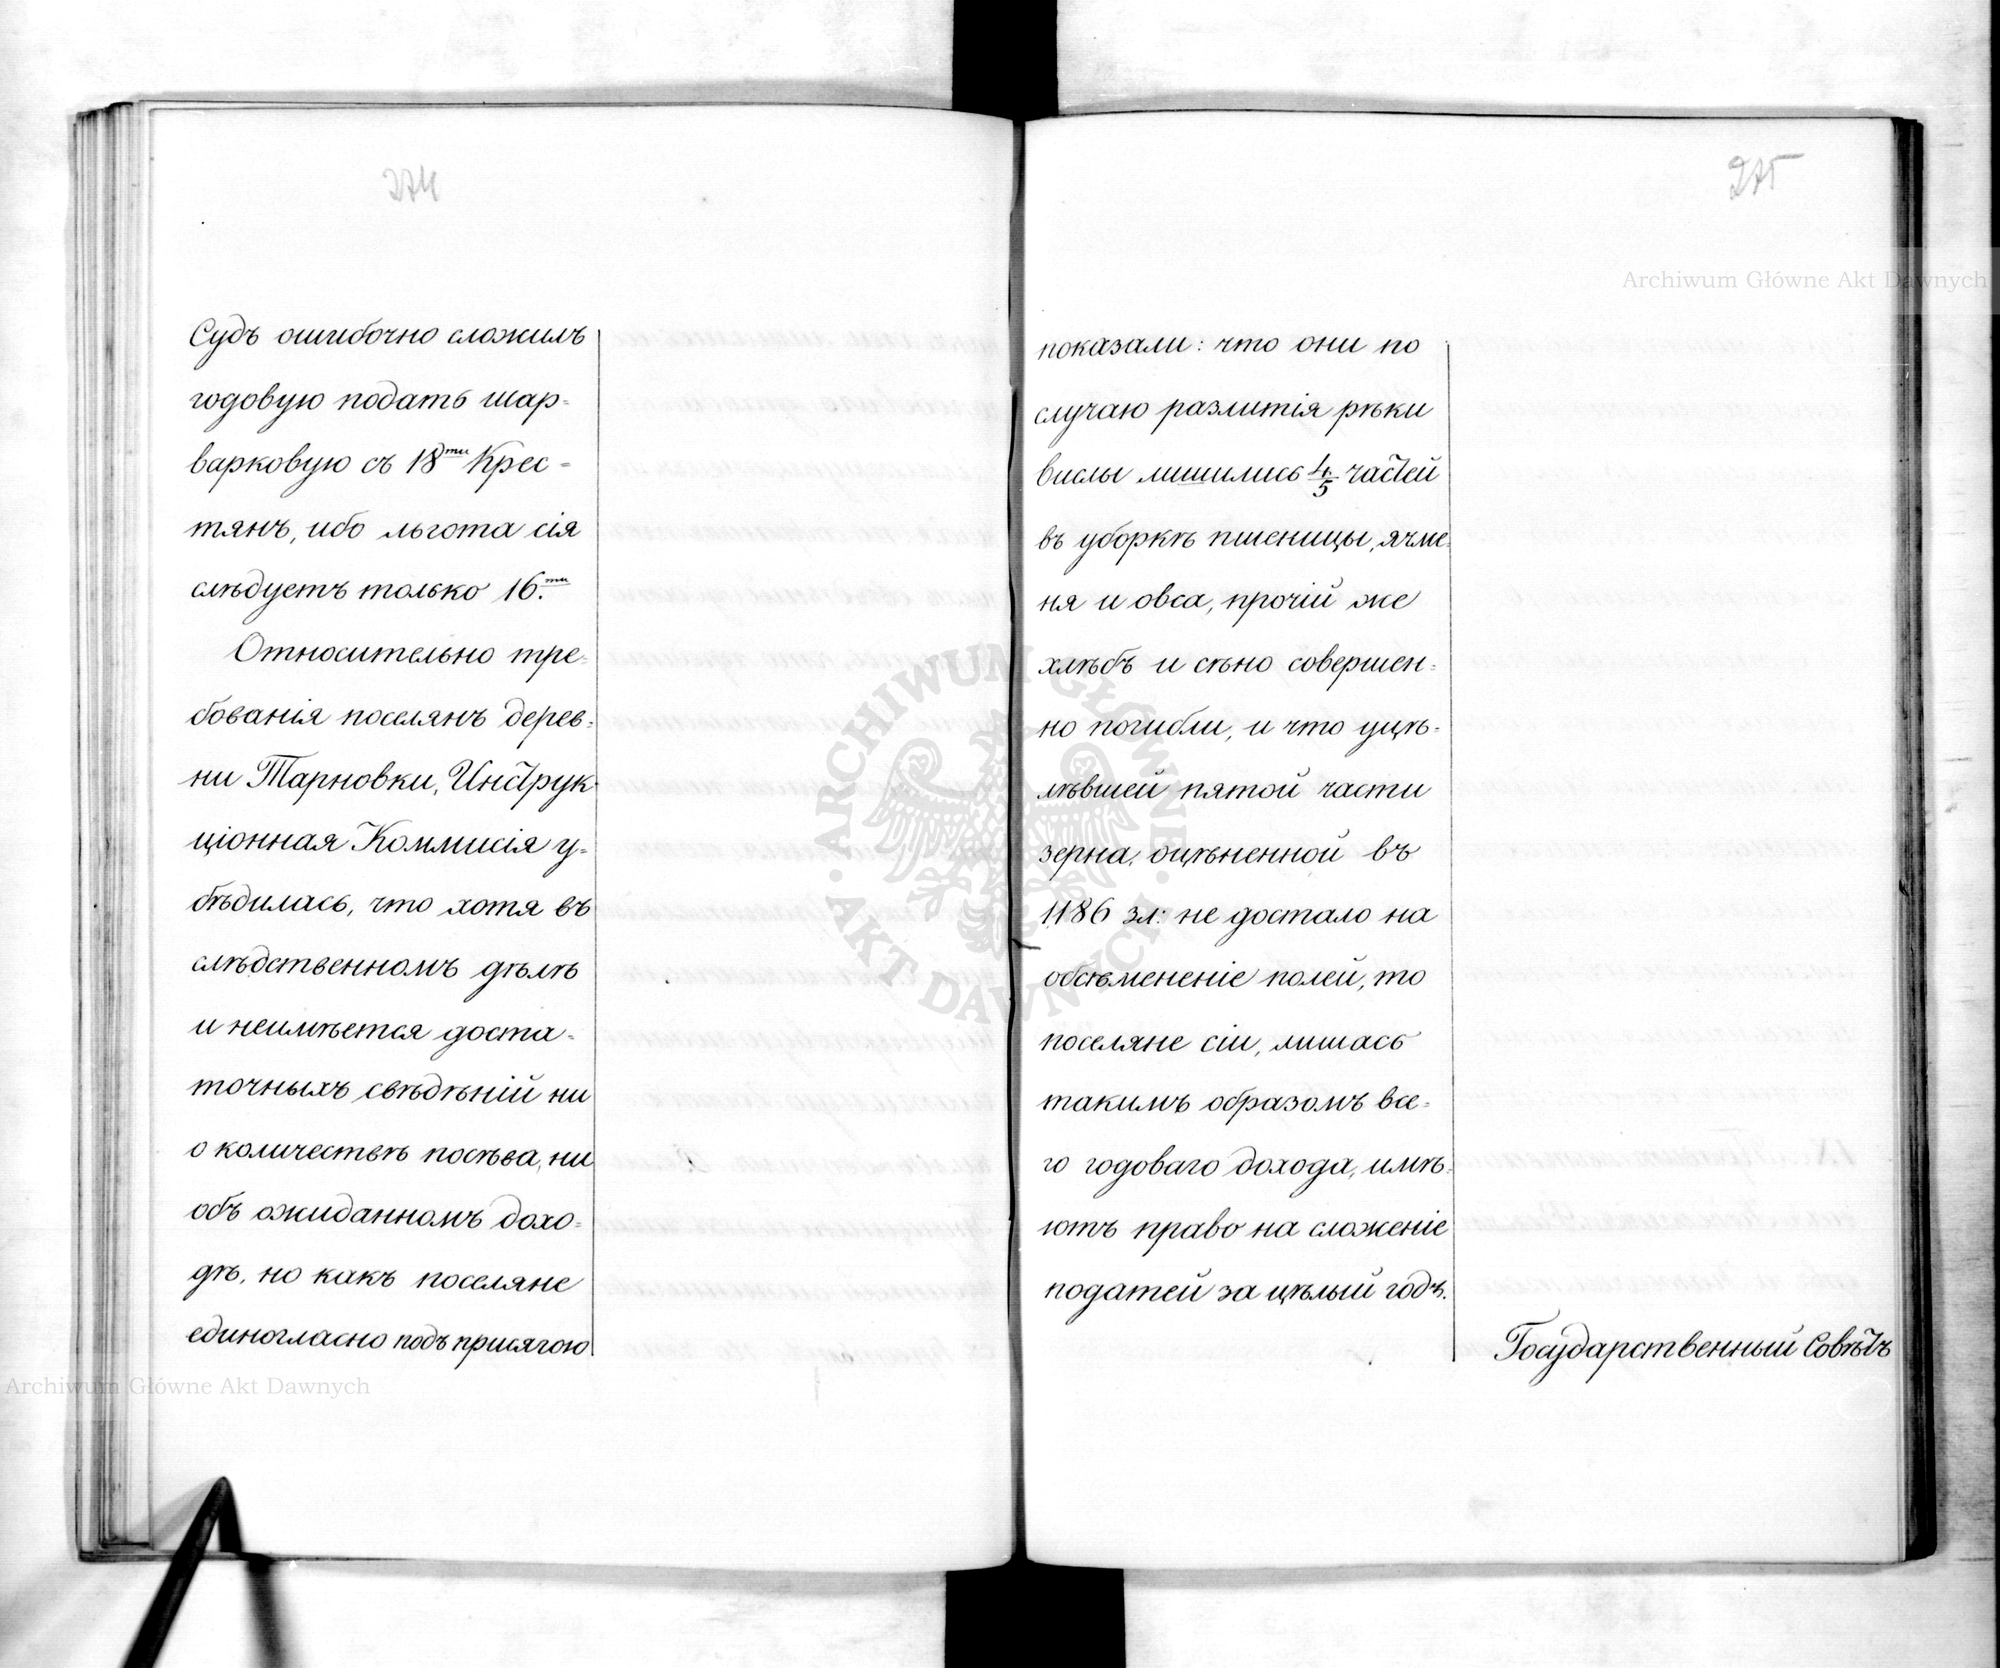 274
Судъ ошибочно сложилъ
годовую подать шар-
варковую съ 18ти Крес-
тянъ, ибо льгота сія
слѣдуетъ только 16.ти
Относительно тре-
бованія поселянъ дерев-
ни Тарновки, Инструк-
ціонная Коммисія у-
бѣдилась, что хотя въ
слѣдственномъ дѣлѣ
и неимѣется доста-
точныхъ свѣдѣній ни
о количествѣ посѣва, ни
объ ожиданномъ дохо-
дѣ, но какъ поселяне
единогласно подъ присягою
275
показали: что они по
случаю разлитія рѣки
вислы лишились 4/5 частей
въ уборкѣ пшеницы, ячме-
ня и овса, прочій же
хлѣбъ и сѣно совершен-
но погибли, и что уцѣ-
лѣвшей пятой части
зерна, оцѣненной въ
1186 зл: не достало на
обсѣмененіе полей, то
поселяне сіи, лишась
такимъ образомъ все-
го годоваго дохода, имѣ-
ютъ право на сложеніе
податей за цѣлый годъ.
Государственный Совѣтъ
Archiwum Główne Akt Dawnych
Archiwum Główne Akt Dawnych
ARCHIWUM GŁÓWNE · AKT DAWNYCH ·